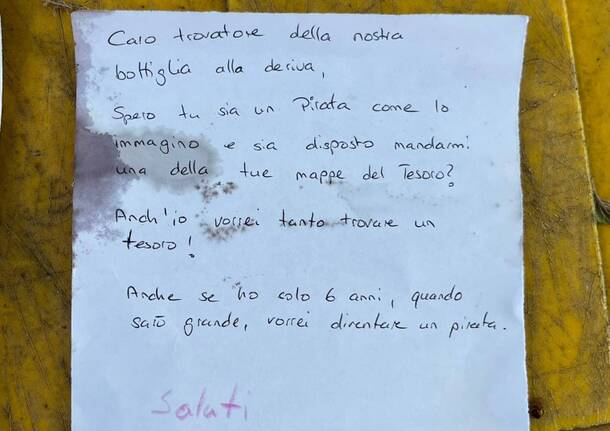 Caro trovatore della nostra
bottiglia alla deriva,
Spero tu sia un Pirata come lo
immagino e sia disposto mandarmi
una della tue mappe del Tesoro?
Anch'io vorrei tanto trovare un
tesoro!
Anche se ho solo 6 anni, quando
sarò grande, vorrei diventare un pirata.
Saluti